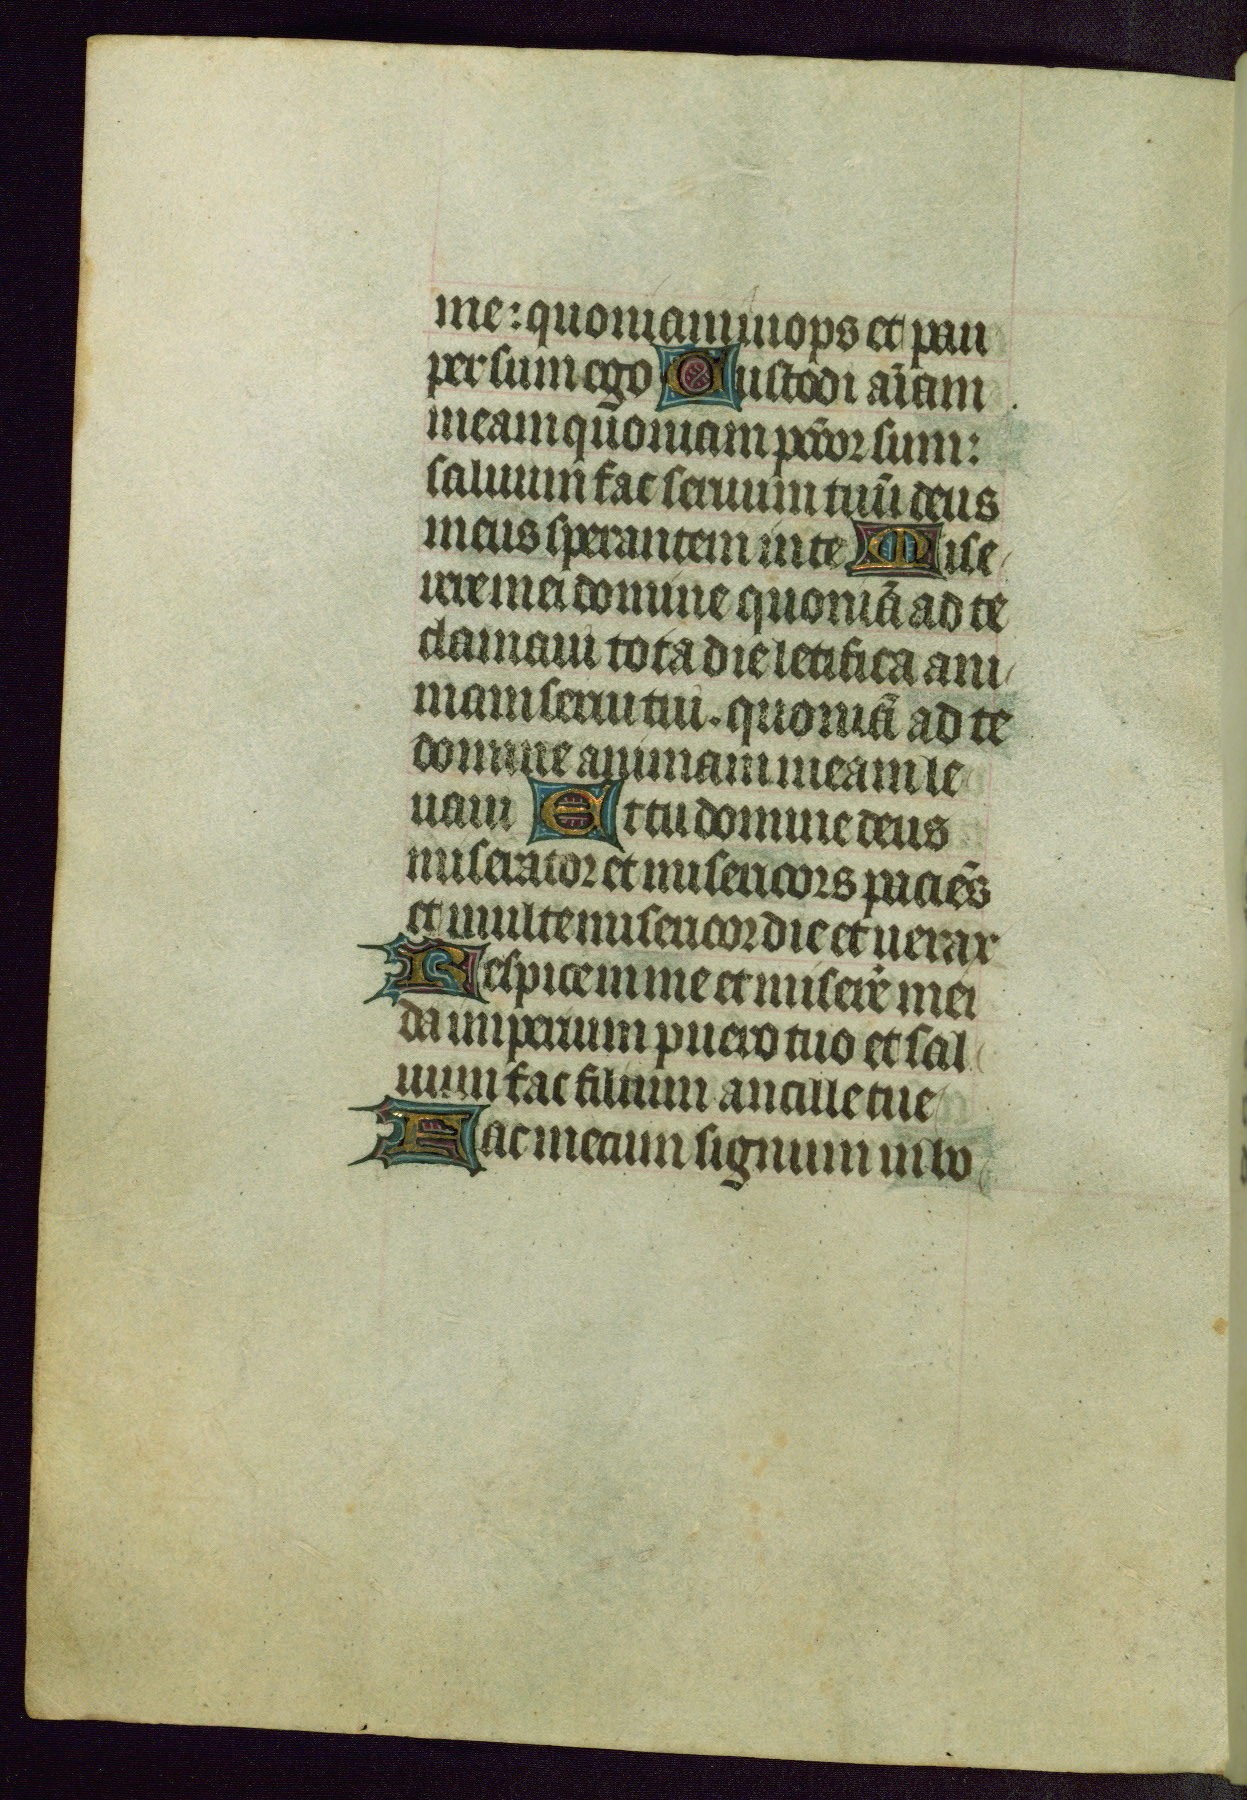 me: quoniam inops et pau
per sum ego Custodi aīam
meam quoniam pctor sum:
saluum fac seruum tuū deus
meus sperantem in te Mise
rere mei domine quoniā ad te
clamaui tota die letifica ani
mam serui tui. quoniā ad te
domine animam meam le
uaui Et tu domine deus
miserator et misericors paciēs
et multe misericordie et uerax
Respice in me et miserē mei
da imperium puero tuo et sal
uum fac filium ancille tue
Fac mecum signum in bo